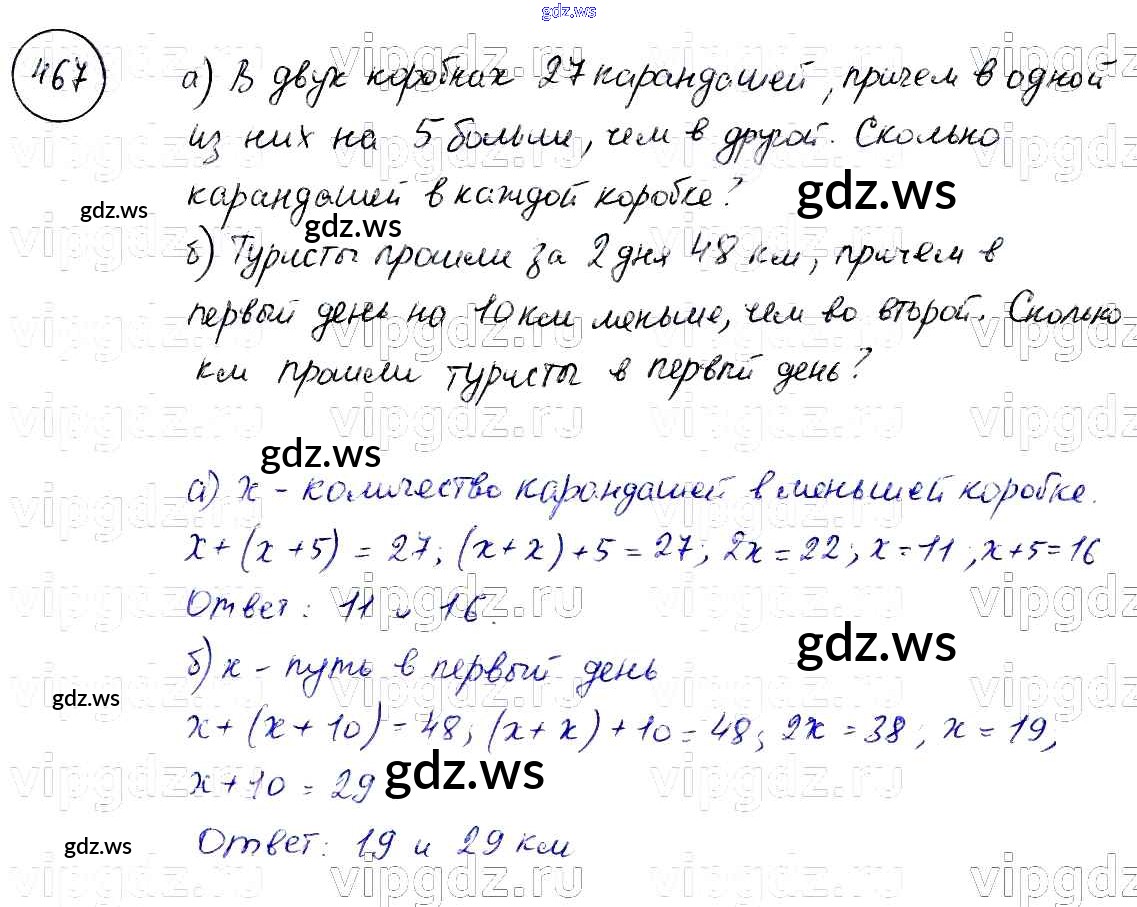 gdz.ws
467
а) В двух коробках 27 карандашей, причем в одной
из них на 5 больше, чем в другой. Сколько
карандашей в каждой коробке?
gdz.ws
gdz.ws
gdz.ws
б) Туристы прошли за 2 дня 48 км, причем в
первый день на 10 км меньше, чем во второй. Сколько
км прошли туристы в первый день?
gdz.ws
а) x - количество карандашей в меньшей коробке.
x + (x + 5) = 27; (x + x) + 5 = 27; 2x = 22; x = 11; x + 5 = 16
Ответ: 11 и 16.
б) x - путь в первый день
gdz.ws
gdz.ws
x + (x + 10) = 48; (x + x) + 10 = 48; 2x = 38; x = 19;
x + 10 = 29
gdz.ws
Ответ: 19 и 29 км
gdz.ws
vipgdz.ru